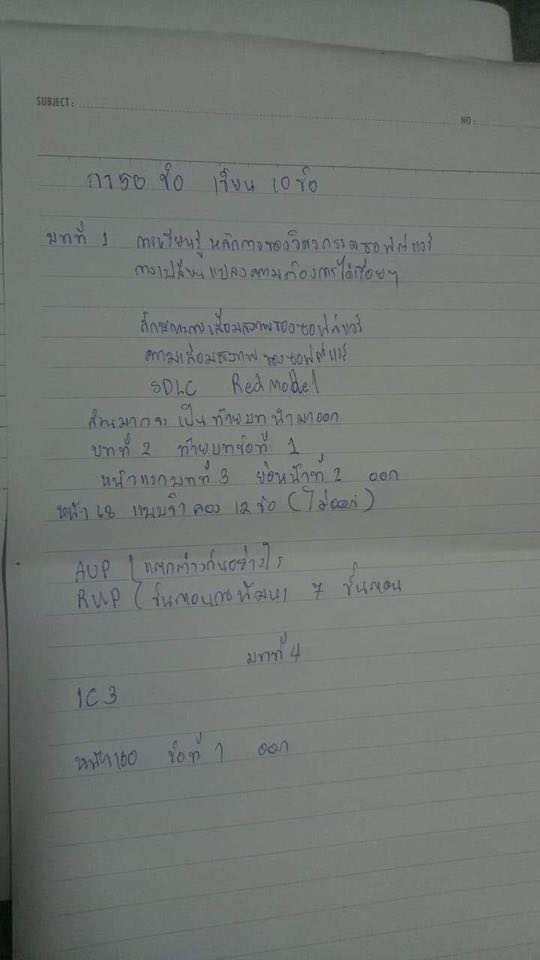 SUBJECT :
NO :
กา 50 ข้อ เขียน 10 ข้อ
บทที่ 1 การเรียนรู้ หลักการของวิศวกรรมซอฟต์แวร์
การเปลี่ยนแปลงความต้องการได้เรื่อยๆ
ลักษณะความเสื่อมสภาพของซอฟต์แวร์
ความเสื่อมสภาพของซอฟต์แวร์
SDLC Red Model
ส่วนมากจะเป็นท้ายบทนำมาออก
บทที่ 2 ท้ายบทข้อที่ 1
หน้าแรกบทที่ 3 ย่อหน้าที่ 2 ออก
หน้า 68 แบบจำลอง 12 ข้อ (ไม่ออก)
AUP แตกต่างกันอย่างไร
RUP ขั้นตอนการพัฒนา 7 ขั้นตอน
บทที่ 4
1C3
หน้า 160 ข้อที่ 1 ออก